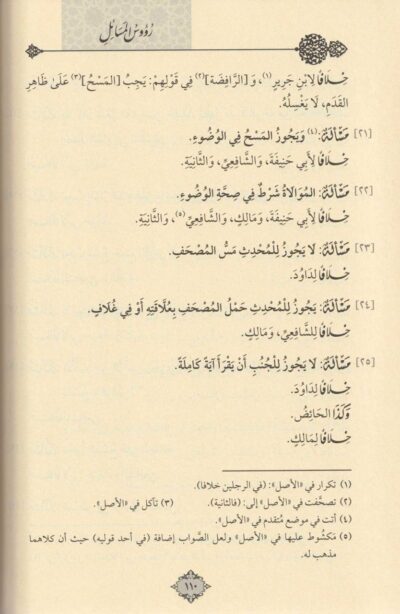 رُؤُوسُ المَسَائِلِ
خِلَافًا لِابْنِ جَرِيرٍ (١)، وَ [الرَّافِضَة](٢) فِي قَوْلِهِمْ: يَجِبُ [المَسْحُ](٣) عَلَىٰ ظَاهِرِ
القَدَمِ، لَا يَغْسِلُهُ.
[٢١] مَسْأَلَةٌ: (٤) وَيَجُوزُ المَسْحُ فِي الوُضُوءِ.
خِلَافًا لِأَبِي حَنِيفَةَ، وَالشَّافِعِيِّ، وَالثَّانِيَةِ.
[٢٢] مَسْأَلَةٌ: المُوَالَاةُ شَرْطٌ فِي صِحَّةِ الوُضُوءِ.
خِلَافًا لِأَبِي حَنِيفَةَ، وَمَالِكٍ، وَالشَّافِعِيِّ (٥)، وَالثَّانِيَةِ.
[٢٣] مَسْأَلَةٌ: لَا يَجُوزُ لِلْمُحْدِثِ مَسُّ المُصْحَفِ.
خِلَافًا لِدَاوُدَ.
[٢٤] مَسْأَلَةٌ: يَجُوزُ لِلْمُحْدِثِ حَمْلُ المُصْحَفِ بِعُلَّاقَتِهِ أَوْ فِي غُلَافٍ.
خِلَافًا لِلشَّافِعِيِّ، وَمَالِكٍ.
[٢٥] مَسْأَلَةٌ: لَا يَجُوزُ لِلْجُنُبِ أَنْ يَقْرَأَ آيَةً كَامِلَةً.
خِلَافًا لِدَاوُدَ.
وَكَذَا الحَائِضُ.
خِلَافًا لِمَالِكٍ.
(١) تكرار في «الأصل»: (في الرجلين خلافا).
(٢) تصحَّفت في «الأصل» إلى: (فالثانية). (٣) تآكل في «الأصل».
(٤) أتت في موضع مُتقدم في «الأصل».
(٥) مَكشُوط عليها في «الأصل» ولعل الصَّواب إضافة (في أحد قوليه) حيث أن كلاهما
مذهب له.
١١٠